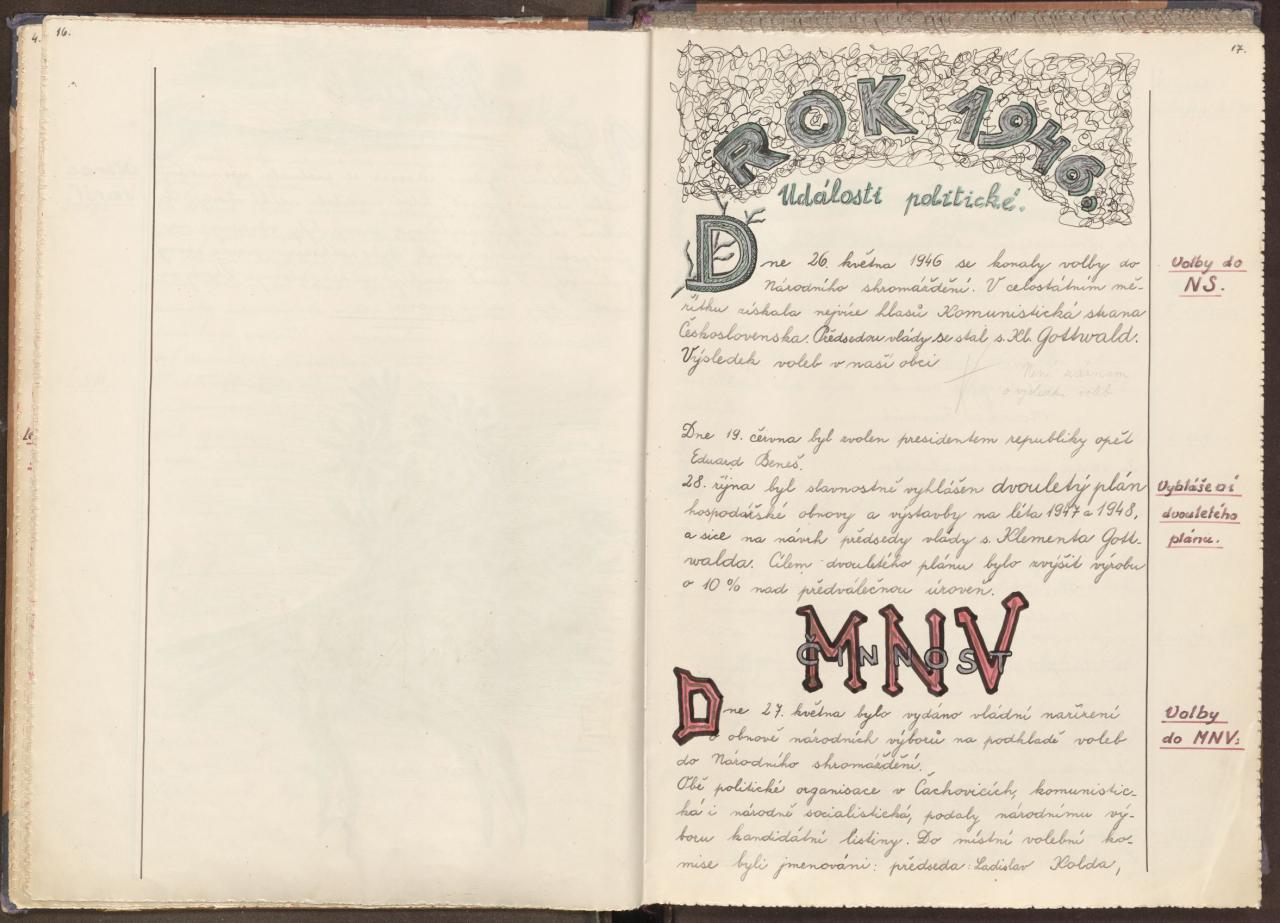 4.
16.
17.
ROK 1946.
Události politické.
Dne 26. května 1946 se konaly volby do
Národního shromáždění. V celostátním mě-
řítku získala nejvíce hlasů Komunistická strana
Československa. Předsedou vlády se stal s. Kl. Gottwald.
Výsledek voleb v naší obci
Není záznam
o výsledku voleb
Volby do
NS.
Dne 19. června byl zvolen presidentem republiky opět
Eduard Beneš.
28. října byl slavnostně vyhlášen dvouletý plán
hospodářské obnovy a výstavby na léta 1947 a 1948,
a sice na návrh předsedy vlády s. Klementa Gott-
walda. Cílem dvouletého plánu bylo zvýšit výrobu
o 10 % nad předválečnou úroveň.
Vyhlášení
dvouletého
plánu.
MNV
ČINNOST
Dne 27. května bylo vydáno vládní nařízení
o obnově národních výborů na podkladě voleb
do Národního shromáždění.
Obě politické organisace v Čachovicích, komunistic-
ká i národně socialistická, podaly národnímu vý-
boru kandidátní listiny. Do místní volební ko-
mise byli jmenováni: předseda: Ladislav Kolda,
Volby
do MNV.